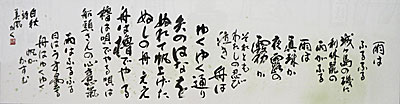 雨は
ふるふる
城ヶ島の磯に
利休鼠の
雨がふる
雨は
真珠か
夜明の
霧か
それとも
わたしの忍び
泣き 舟は
ゆくゆく通り
矢のはなを
ぬれて帆上げた
ぬしの舟 ええ
舟は櫓でやる
櫓は唄でやる 唄は
船頭さんの心意気
雨はふるふる
日はうす曇る
舟はゆくゆく
帆がかすむ
白秋
詩